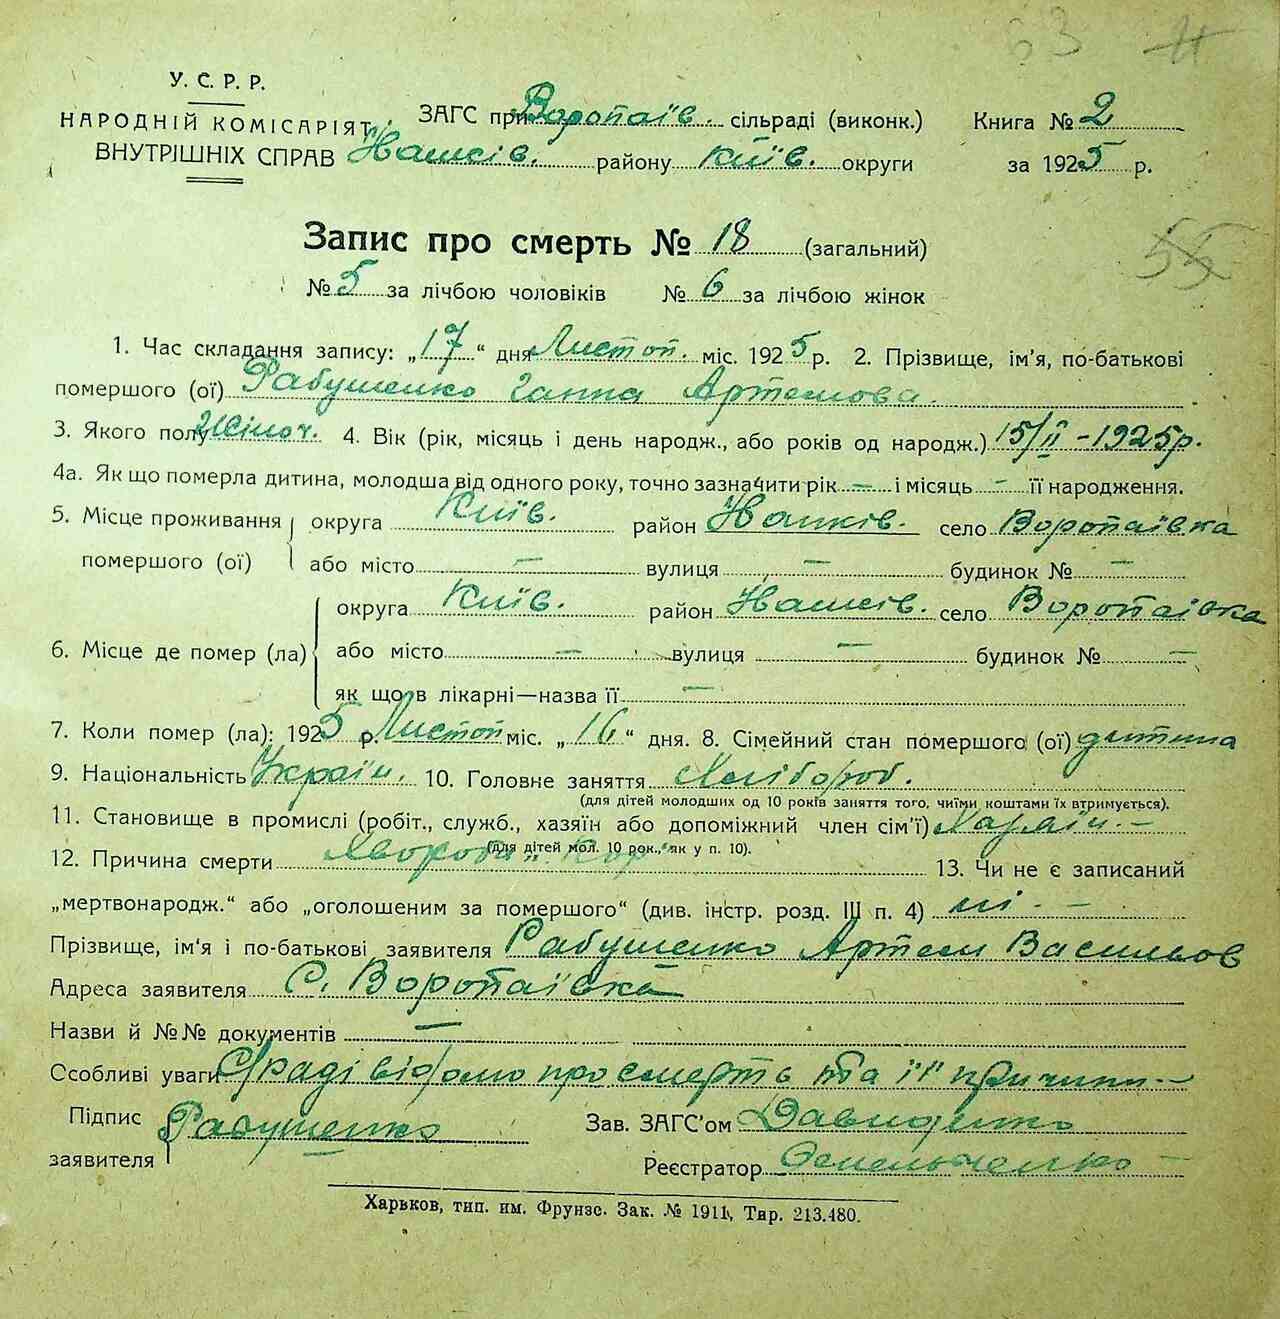 63 11
У. С. Р. Р.
НАРОДНІЙ КОМІСАРІЯТ
ВНУТРІШНІХ СПРАВ
ЗАГС при Воропаїв. сільраді (виконк.)
района Київ. округи
Книга № 2
за 1925 р.
Запис про смерть № 18 (загальний)
55
№ 5 за лічбою чоловіків № 6 за лічбою жінок
1. Час складання запису: „17“ дня Листоп. міс. 1925 р. 2. Прізвище, ім'я, по-батькові
помершого (ої) Рабушенко Ганна Артемова.
3. Якого полу Жіноч. 4. Вік (рік, місяць і день народж., або років од народж.) 15/II - 1925 р.
4а. Як що померла дитина, молодша від одного року, точно зазначити рік — і місяць — її народження.
5. Місце проживання помершого (ої) округа Київ. район село Воропаївка
або місто — вулиця — будинок № —
6. Місце де помер (ла) округа Київ. район село Воропаівка
або місто — вулиця — будинок № —
як що в лікарні—назва її —
7. Коли помер (ла): 1925 р. Листоп міс. „16“ дня. 8. Сімейний стан помершого (ої) дитина
9. Національність Україн. 10. Головне заняття Хлібороб.
(для дітей молодших од 10 років заняття того, чиїми коштами їх втримується).
11. Становище в промислі (робіт., служб., хазяїн або допоміжний член сім'ї) Хазяін. —
(для дітей мол. 10 рок., як у п. 10).
12. Причина смерти Хвороба „Кор“ 13. Чи не є записаний
„мертвонародж.“ або „оголошеним за помершого“ (див. інстр. розд. III п. 4) ні. —
Прізвище, ім'я і по-батькові заявителя Рабушенко Артем Васильов
Адреса заявителя С. Воропаївка
Назви й №№ документів —
Особливі уваги С/раді відомо про смерть та її причини —
Підпис заявителя Рабушенко
Зав. ЗАГС'ом Давиденко
Реєстратор Омельченко —
Харьков, тип. им. Фрунзе. Зак. № 1911, Тир. 213.480.